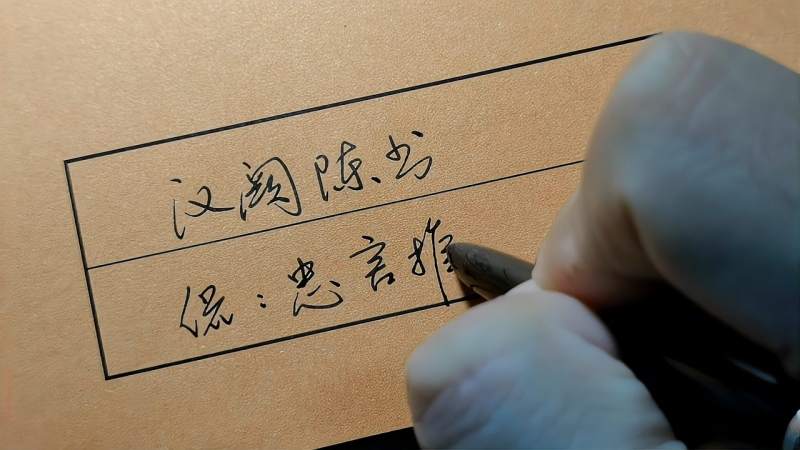 汉阙陈书
侃：忠言推